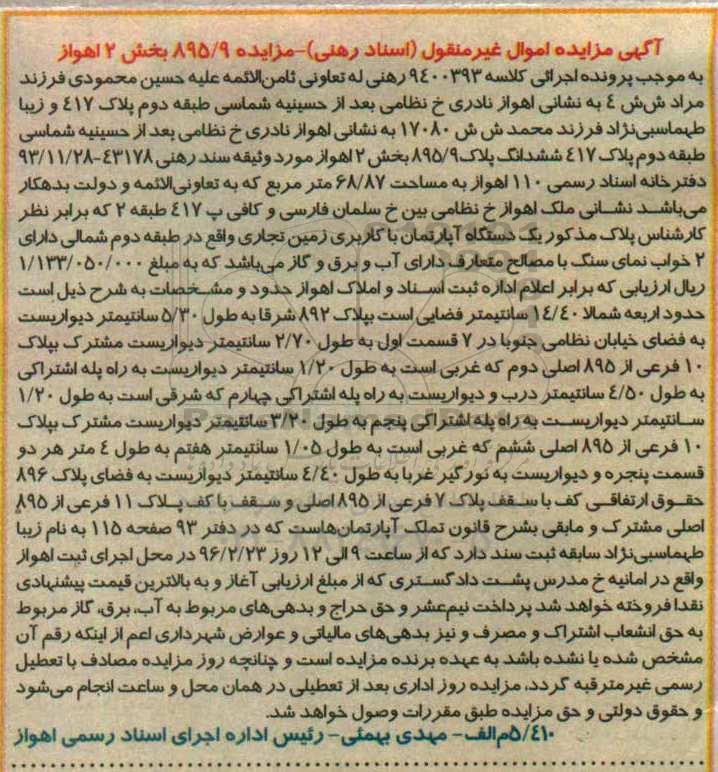 آگهی مزایده اموال غیرمنقول (اسناد رهنی)-مزایده ۸۹۵/۹ بخش ۲ اهواز
به موجب پرونده اجرائی کلاسه ۹۴۰۰۳۹۳ رهنی له تعاونی ثامن‌الائمه علیه حسین محمودی فرزند
مراد ش‌ش ۴ به نشانی اهواز نادری خ نظامی بعد از حسینیه شماسی طبقه دوم پلاک ۴۱۷ و زیبا
طهماسبی‌نژاد فرزند محمد ش ش ۱۷۰۸۰ به نشانی اهواز نادری خ نظامی بعد از حسینیه شماسی
طبقه دوم پلاک ۴۱۷ ششدانگ پلاک ۸۹۵/۹ بخش ۲ اهواز مورد وثیقه سند رهنی ۴۳۱۷۸-۹۳/۱۱/۲۸
دفترخانه اسناد رسمی ۱۱۰ اهواز به مساحت ۶۸/۸۷ متر مربع که به تعاونی‌الائمه و دولت بدهکار
می‌باشد نشانی ملک اهواز خ نظامی بین خ سلمان فارسی و کافی پ ۴۱۷ طبقه ۲ که برابر نظر
کارشناس پلاک مذکور یک دستگاه آپارتمان با کاربری زمین تجاری واقع در طبقه دوم شمالی دارای
۲ خواب نمای سنگ با مصالح متعارف دارای آب و برق و گاز می‌باشد که به مبلغ ۱/۱۳۳/۰۵۰/۰۰۰
ریال ارزیابی که برابر اعلام اداره ثبت اسناد و املاک اهواز حدود و مشخصات به شرح ذیل است
حدود اربعه شمالا ۱۴/۴۰ سانتیمتر فضایی است بپلاک ۸۹۲ شرقا به طول ۵/۳۰ سانتیمتر دیواریست
به فضای خیابان نظامی جنوبا در ۷ قسمت اول به طول ۲/۷۰ سانتیمتر دیواریست مشترک بپلاک
۱۰ فرعی از ۸۹۵ اصلی دوم که غربی است به طول ۱/۲۰ سانتیمتر دیواریست به راه پله اشتراکی
به طول ۴/۵۰ سانتیمتر درب و دیواریست به راه پله اشتراکی چهارم که شرقی است به طول ۱/۲۰
سانتیمتر دیواریست به راه پله اشتراکی پنجم به طول ۳/۲۰ سانتیمتر دیواریست مشترک بپلاک
۱۰ فرعی از ۸۹۵ اصلی ششم که غربی است به طول ۱/۰۵ سانتیمتر هفتم به طول ۴ متر هر دو
قسمت پنجره و دیواریست به نورگیر غربا به طول ۴/۴۰ سانتیمتر دیواریست به فضای پلاک ۸۹۶
حقوق ارتفاقی کف با سقف پلاک ۷ فرعی از ۸۹۵ اصلی و سقف با کف پلاک ۱۱ فرعی از ۸۹۵
اصلی مشترک و مابقی بشرح قانون تملک آپارتمان‌هاست که در دفتر ۹۳ صفحه ۱۱۵ به نام زیبا
طهماسبی‌نژاد سابقه ثبت سند دارد که از ساعت ۹ الی ۱۲ روز ۹۶/۲/۲۳ در محل اجرای ثبت اهواز
واقع در امانیه خ مدرس پشت دادگستری که از مبلغ ارزیابی آغاز و به بالاترین قیمت پیشنهادی
نقدا فروخته خواهد شد پرداخت نیم‌عشر و حق حراج و بدهی‌های مربوط به آب، برق، گاز مربوط
به حق انشعاب اشتراک و مصرف و نیز بدهی‌های مالیاتی و عوارض شهرداری اعم از اینکه رقم آن
مشخص شده یا نشده باشد به عهده برنده مزایده است و چنانچه روز مزایده مصادف با تعطیل
رسمی غیرمترقبه گردد، مزایده روز اداری بعد از تعطیلی در همان محل و ساعت انجام می‌شود
و حقوق دولتی و حق مزایده طبق مقررات وصول خواهد شد.
۵/۴۱۰م‌الف- مهدی بهمئی- رئیس اداره اجرای اسناد رسمی اهواز